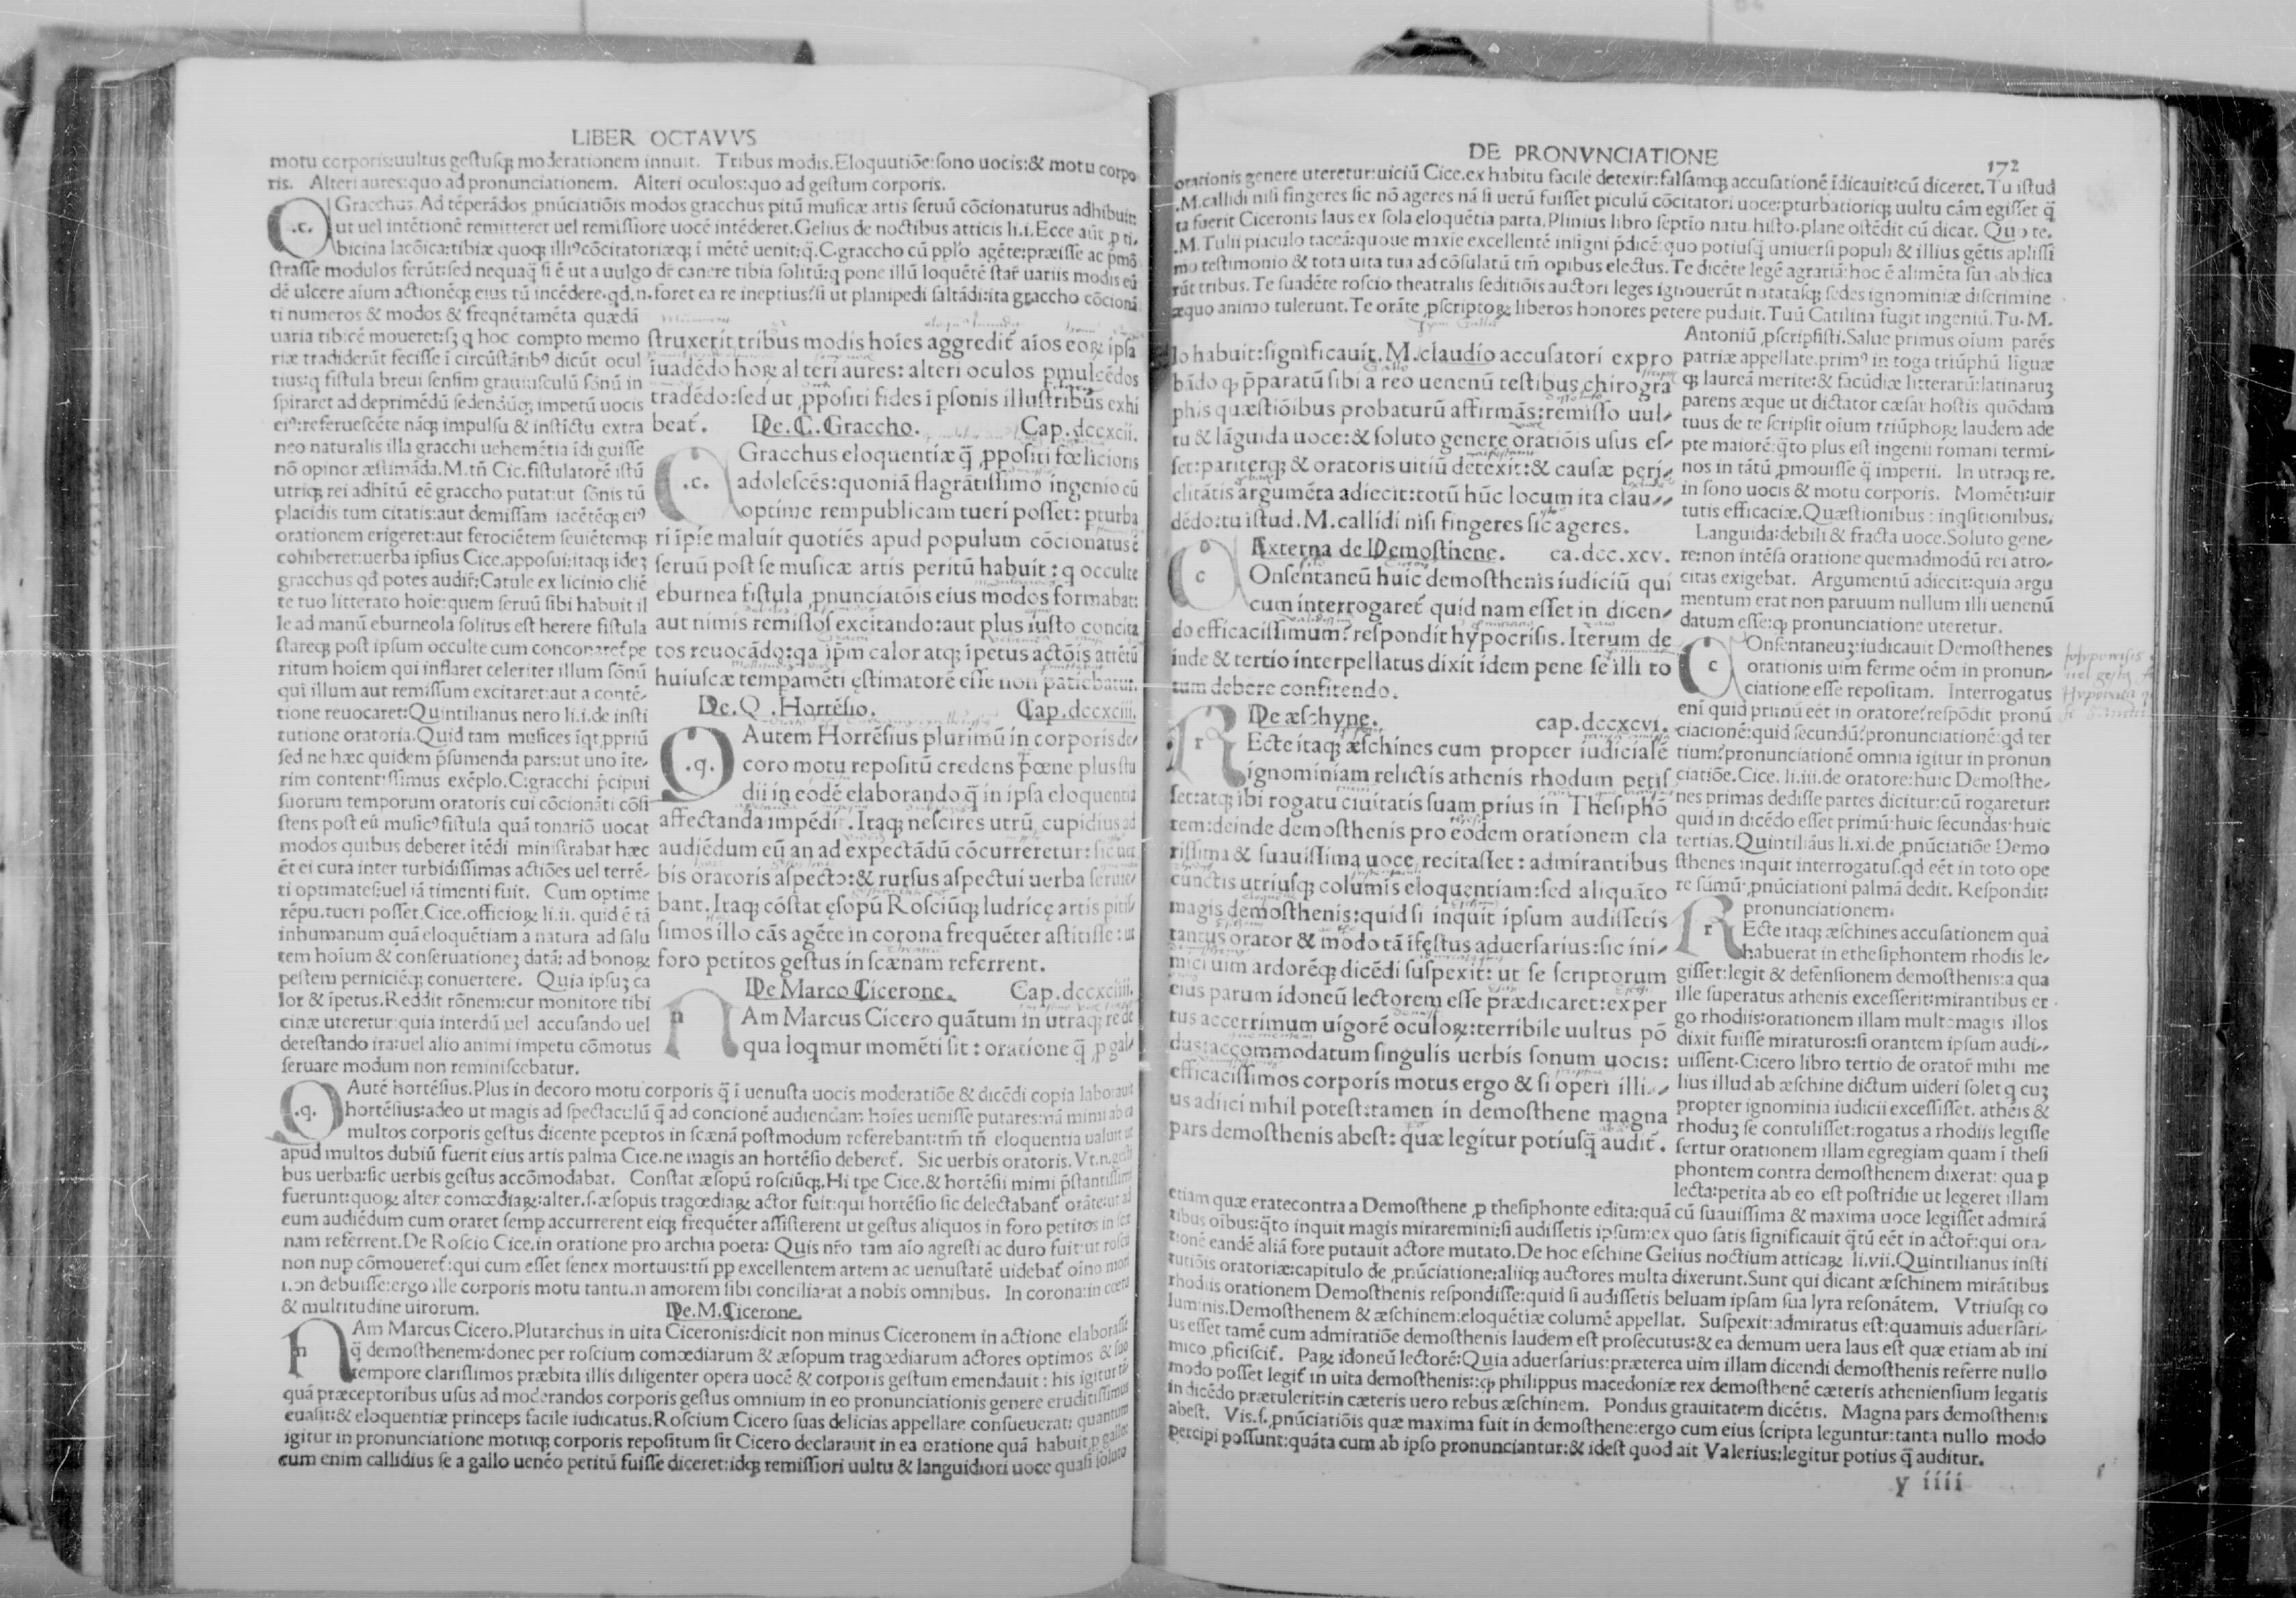 LIBER OCTAVVS
motu corporis:uultus geſtuſqꝫ moderationem innuit. Tribus modis.Eloquutiōe:ſono uocis:& motu corpo
ris. Alteri aures:quo ad pronunciationem. Alteri oculos:quo ad geſtum corporis.
.c. Gracchus. Ad tēperādos ꝓnūciatiōis modos gracchus pitū muſicæ artis ſeruū cōcionaturus adhibuit:
ut uel intētionē remitteret uel remiſſiorē uocē intēderet.Gelius de noctibus atticis li.i.Ecce aūt ꝑ ti-
bicina lacōica:tibiæ quoqꝫ illiꝰ cōcitatoriæqꝫ ī mētē uenit:q̄.C.graccho cū pplo agēte:præiſſe ac pmō
ſtraſſe modulos ferūt:ſed nequaq̄ ſi ē ut a uulgo dr̄ canere tibia ſolitū:q pone illū loquētē ſtar̄ uariis modis eū
dē ulcere aium actionēqꝫ eius tū incēdere.qd.n.foret ea re ineptius?ſi ut planipedi ſaltādi:ita graccho cōcionā
ti numeros & modos & freqnētamēta quædā
uaria tibicē moueret:ſꝫ q hoc compto memo
riæ tradiderūt feciſſe ī circūſtātibꝰ dicūt ocul
tius:q fiſtula breui ſenſim grauiuſculū ſōnū in
ſpiraret ad deprimēdū ſedendūqꝫ impetū uocis
eiꝰ:referueſcēte nāqꝫ impulſu & inſtictu extra
neo naturalis illa gracchi uehemētia īdiguiſſe
nō opinor æſtimāda.M.tn̄ Cic.fiſtulatorē iſtū
utriqꝫ rei adhitū eē graccho putat:ut ſōnis tū
placidis tum citatis:aut demiſſam iacētēqꝫ eiꝰ
orationem erigeret:aut ferociētem ſeuiētemqꝫ
cohiberet:uerba ipſius Cice.appoſui:itaqꝫ ideꝫ
gracchus qd potes audir̄:Catule ex licinio cliē
te tuo litterato hoie:quem ſeruū ſibi habuit il
le ad manū eburneola ſolitus eſt herere fiſtula
ſtareqꝫ poſt ipſum occulte cum concionaret pe
ritum hoiem qui inflaret celeriter illum ſōnū
qui illum aut remiſſum excitaret:aut a contē-
tione reuocaret:Quintilianus nero li.i.de inſti
tutione oratoria.Quid tam muſices īqt ꝓpriū
ſed ne hæc quidem p̄ſumenda pars:ut uno īte-
rim contentiſſimus exēplo.C:gracchi p̄cipui
ſuorum temporum oratoris cui cōcionāti cōſi
ſtens poſt eū muſicꝰ fiſtula quā tonariō uocat
modos quibus deberet itēdi miniſtrabat hæc
ēt ei cura inter turbidiſſimas actiōes uel terrē-
ti optimates:uel iā timenti fuit. Cum optime
rēpu.tueri poſſet.Cice.officioꝝ li.ii. quid ē tā
inhumanum quā eloquētiam a natura ad ſalu
tem hoium & conſeruationeꝫ datā: ad bonoꝝ
peſtem perniciēqꝫ conuertere. Quia ipſuꝫ ca
lor & ipetus.Reddit rōnem:cur monitore tibi
cinæ uteretur:quia interdū uel accuſando uel
deteſtando ira:uel alio animi impetu cōmotus
ſeruare modum non reminiſcebatur.
ſtruxerit.tribus modis hoies aggredit aios eoꝝ ipſa
īuadēdo hoꝝ alteri aures: alteri oculos pmulcēdos
tradēdo:ſed ut ꝓpoſiti fides ī pſonis illuſtribus exhi
beat. De.C.Graccho. Cap.dccxcii.
.c. Gracchus eloquentiæ q̄ ꝓpoſiti fœlicioris
adoleſcēs:quoniā flagrātiſſimo ingenio cū
optime rempublicam tueri poſſet: pturba
ri īpie maluit quotiēs apud populum cōcionatus ē
ſeruū poſt ſe muſicæ artis peritū habuit: q occulte
eburnea fiſtula ꝓnunciatōis eius modos formabat:
aut nimis remiſſos excitando:aut plus iuſto concita
tos reuocādo:qa ipm calor atqꝫ ipetus actōis attētū
huiuſcæ tempamēti ęſtimatorē eſſe non patiebatur.
De.Q .Hortēſio. Cap.dccxciii.
.q. Autem Hortēſius plurimū in corporis de-
coro motu repoſitū credens pœne plus ſtu
dii in eodē elaborando q̄ in ipſa eloquentia
affectanda impēdit. Itaqꝫ neſcires utrū cupidius ad
audiēdum eū an ad expectādū cōcurreretur: ſic uer
bis oratoris aſpecto:& rurſus aſpectui uerba ſerute-
bant.Itaqꝫ cōſtat ęſopū Roſciūqꝫ ludricę artis pitiſ-
ſimos illo cās agēte in corona frequēter aſtitiſſe: ut
foro petitos geſtus in ſcænam referrent.
De Marco Cicerone. Cap.dccxciiii.
n Am Marcus Cicero quātum in utraqꝫ re de
qua loqmur momēti ſit: oratione q̄ ꝓ gal-
.q. Autē hortēſius.Plus in decoro motu corporis q̄ ī uenuſta uocis moderatiōe & dicēdi copia laborauit
hortēſius:adeo ut magis ad ſpectaculū q̄ ad concionē audiendam hoies ueniſſe putares:nā mimi ab ea
multos corporis geſtus dicente pceptos in ſcænā poſtmodum referebant:tm̄ tn̄ eloquentia ualuit ut
apud multos dubiū fuerit eius artis palma Cice.ne magis an hortēſio deberet. Sic uerbis oratoris.Vt.n.geſti
bus uerba:ſic uerbis geſtus accōmodabat. Conſtat æſopū roſciūqꝫ.Hi tpe Cice.& hortēſii mimi p̄ſtantiſſimi
fuerunt:quoꝝ alter comœdiaꝝ:alter.ſ.æſopus tragœdiaꝝ actor fuit:qui hortēſio ſic delectabant orāte:ut ad
eum audiēdum cum oraret ſemp accurrerent eiqꝫ frequēter aſſiſterent ut geſtus aliquos in foro petitos in ſce
nam referrent.De Roſcio Cice.in oratione pro archia poeta: Quis nr̄o tam aio agreſti ac duro fuit:ut roſcii
non nup cōmoueret:qui cum eſſet ſenex mortuus:tn̄ pp excellentem artem ac uenuſtatē uidebat oino mori
non debuiſſe:ergo ille corporis motu tantum amorem ſibi conciliarat a nobis omnibus. In corona:in cœtu
& multitudine uirorum. De.M.Cicerone.
n Am Marcus Cicero.Plutarchus in uita Ciceronis:dicit non minus Ciceronem in actione elaboraſſe
q̄ demoſthenem:donec per roſcium comœdiarum & æſopum tragœdiarum actores optimos & ſuo
tempore clariſſimos præbita illis diligenter opera uocē & corporis geſtum emendauit : his igitur tā-
quā præceptoribus uſus ad moderandos corporis geſtus omnium in eo pronunciationis genere eruditiſſimus
euaſit:& eloquentiæ princeps facile iudicatus.Roſcium Cicero ſuas delicias appellare conſueuerat: quantum
igitur in pronunciatione motuqꝫ corporis repoſitum ſit Cicero declarauit in ea oratione quā habuit ꝓ gallet
cum enim callidius ſe a gallo uenēo petitū fuiſſe diceret:idqꝫ remiſſiori uultu & languidiori uoce quaſi ſoluto
DE PRONVNCIATIONE
172
orationis genere uteretur:uiciū Cice.ex habitu facile detexir:falſamqꝫ accuſationē īdicauit:cū diceret.Tu iſtud
.M.callidi niſi fingeres ſic nō ageres nā ſi uerū fuiſſet piculū cōcitatiori uoce:pturbatioriqꝫ uultu cām egiſſet q̄
ta fuerit Ciceronis laus ex ſola eloquētia parta.Plinius libro ſeptīo natu.hiſto.plane oſtēdit cū dicat. Quo te.
.M.Tulii piaculo taceā:quoue maxie excellentē inſigni p̄dicē:quo potiuſq̄ uniuerſi populi & illius gētis apliſſi
mo teſtimonio & tota uita tua ad cōſulatū tm̄ opibus electus.Te dicēte legē agrariā:hoc ē alimēta ſua abdica
rūt tribus.Te ſuadēte roſcio theatralis ſeditiōis auctori leges ignouerūt notataſqꝫ ſedes ignominiæ diſcrimine
æquo animo tulerunt.Te orāte ꝓſcriptoꝝ liberos honores petere puduit.Tuū Catilina fugit ingeniū.Tu.M.
lo habuit:ſignificauit.M.claudio accuſatori expro
bādo qꝫ p̄paratū ſibi a reo uenenū teſtibus chirogra
phis quæſtiōibus probaturū affirmās:remiſſo uul-
tu & lāguida uoce:& ſoluto genere oratiōis uſus eſ-
ſet:pariterqꝫ & oratoris uitiū detexit:& cauſæ peri-
clitātis argumēta adiecit:totū hūc locum ita clau-
dēdo:tu iſtud.M.callidi niſi fingeres ſic ageres.
Externa de Demoſthene. ca.dcc.xcv.
c Onſentaneū huic demoſthenis iudiciū qui
cum interrogaret quid nam eſſet in dicen-
do efficaciſſimum?reſpondit hypocriſis. Iterum de
inde & tertio interpellatus dixit idem pene ſe illi to
tum debere confitendo.
De æſchyne. cap.dccxcvi.
r Ecte itaqꝫ æſchines cum propter iudicialē
ignominiam relictis athenis rhodum petiſ
ſet:atqꝫ ibi rogatu ciuitatis ſuam prius in Theſiphō
tem:deinde demoſthenis pro eodem orationem cla
riſſima & ſuauiſſima uoce recitaſſet: admirantibus
cunctis utriuſqꝫ columis eloquentiam:ſed aliquāto
magis demoſthenis:quid ſi inquit ipſum audiſſetis
tantus orator & modo tā īfeſtus aduerſarius:ſic ini-
mici uim ardorēqꝫ dicēdi ſuſpexit: ut ſe ſcriptorum
eius parum idoneū lectorem eſſe prædicaret:exper
tus accerrimum uigorē oculoꝝ:terribile uultus pō
dus:accommodatum ſingulis uerbis ſonum uocis:
efficaciſſimos corporis motus ergo & ſi operi illi-
us adiici nihil poteſt:tamen in demoſthene magna
pars demoſthenis abeſt: quæ legitur potiuſq̄ audit.
Antoniū ꝓſcripſiſti.Salue primus oium parēs
patriæ appellate.primꝰ in toga triūphū liguæ
qꝫ laureā merite:& facūdiæ litterarū:latinaruꝫ
parens æque ut dictator cæſar hoſtis quōdam
tuus de te ſcripſit oium triūphoꝝ laudem ade
pte maiorē:q̄to plus eſt ingenii romani termi-
nos in tātū ꝓmouiſſe q̄ imperii. In utraqꝫ re.
in ſono uocis & motu corporis. Momēti:uir
tutis efficaciæ.Quæſtionibus : inqſitionibus.
Languida:debili & fracta uoce.Soluto gene-
re:non intēſa oratione quemadmodū rei atro-
citas exigebat. Argumentū adiecit:quia argu
mentum erat non paruum nullum illi uenenū
datum eſſe:qꝫ pronunciatione uteretur.
c Onſentaneuꝫ:iudicauit Demoſthenes
orationis uim ferme oēm in pronun-
ciatione eſſe repoſitam. Interrogatus
enī quid primū eēt in oratore?reſpōdit pronū
ciacionē:quid ſecundū?pronunciationē:qd ter
tium?pronunciationē omnia igitur in pronun
ciatiōe.Cice. li.iii.de oratore:huic Demoſthe-
nes primas dediſſe partes dicitur:cū rogaretur:
quid in dicēdo eſſet primū:huic ſecundas:huic
tertias.Quintiliāus li.xi.de ꝓnūciatiōe Demo
ſthenes inquit interrogatuſ.qd eēt in toto ope
re ſūmū ꝓnūciationi palmā dedit. Reſpondit:
pronunciationem.
r Ecte itaqꝫ æſchines accuſationem quā
habuerat in etheſiphontem rhodis le-
giſſet:legit & defenſionem demoſthenis:a qua
ille ſuperatus athenis exceſſerit:mirantibus er
go rhodiis:orationem illam multomagis illos
dixit fuiſſe miraturos:ſi orantem ipſum audi-
uiſſent.Cicero libro tertio de orator̄ mihi me
lius illud ab æſchine dictum uideri ſolet q cuꝫ
propter ignominia iudicii exceſſiſſet. athēis &
rhoduꝫ ſe contuliſſet:rogatus a rhodiis legiſſe
fertur orationem illam egregiam quam ī theſi
phontem contra demoſthenem dixerat: qua p
lecta:petita ab eo eſt poſtridie ut legeret illam
etiam quæ eratecontra a Demoſthene ꝓ theſiphonte edita:quā cū ſuauiſſima & maxima uoce legiſſet admirā
tibus oibus:q̄to inquit magis miraremini:ſi audiſſetis ipſum:ex quo ſatis ſignificauit q̄tū eēt in actor̄:qui ora-
tionē eandē aliā fore putauit actore mutato.De hoc eſchine Gelius noctium atticaꝝ li.vii.Quintilianus inſti
tutiōis oratoriæ:capitulo de ꝓnūciatione:aliiqꝫ auctores multa dixerunt.Sunt qui dicant æſchinem mirātibus
rhodiis orationem Demoſthenis reſpondiſſe:quid ſi audiſſetis beluam ipſam ſua lyra reſonātem. Vtriuſqꝫ co
luminis.Demoſthenem & æſchinem:eloquētiæ columē appellat. Suſpexit:admiratus eſt:quamuis aduerſari-
us eſſet tamē cum admiratiōe demoſthenis laudem eſt proſecutus:& ea demum uera laus eſt quæ etiam ab ini
mico ꝓficiſcit. Paꝝ idoneū lectorē:Quia aduerſarius:præterea uim illam dicendi demoſthenis referre nullo
modo poſſet legit in uita demoſthenis::qꝫ philippus macedoniæ rex demoſthenē cæteris athenienſium legatis
in dicēdo prætulerit:in cæteris uero rebus æſchinem. Pondus grauitatem dicētis. Magna pars demoſthenis
abeſt. Vis.ſ.ꝓnūciatiōis quæ maxima fuit in demoſthene:ergo cum eius ſcripta leguntur:tanta nullo modo
percipi poſſunt:quāta cum ab ipſo pronunciantur:& ideſt quod ait Valerius:legitur potius q̄ auditur.
y iiii